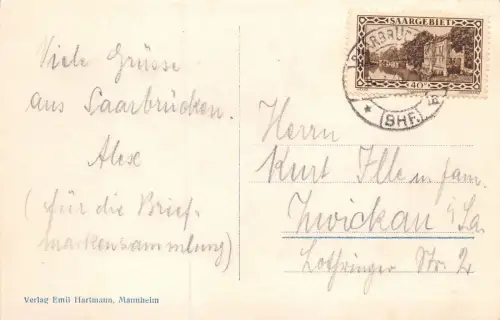 Viele Grüsse
aus Saarbrücken.
Alex
(für die Brief-
markensammlung)
SAARGEBIET
40
SAARBRÜC
* (BHF.)
Herrn
Kurt Ille u. fam.
Zwickau i/Sa.
Lothringer Str. 2
Verlag Emil Hartmann, Mannheim